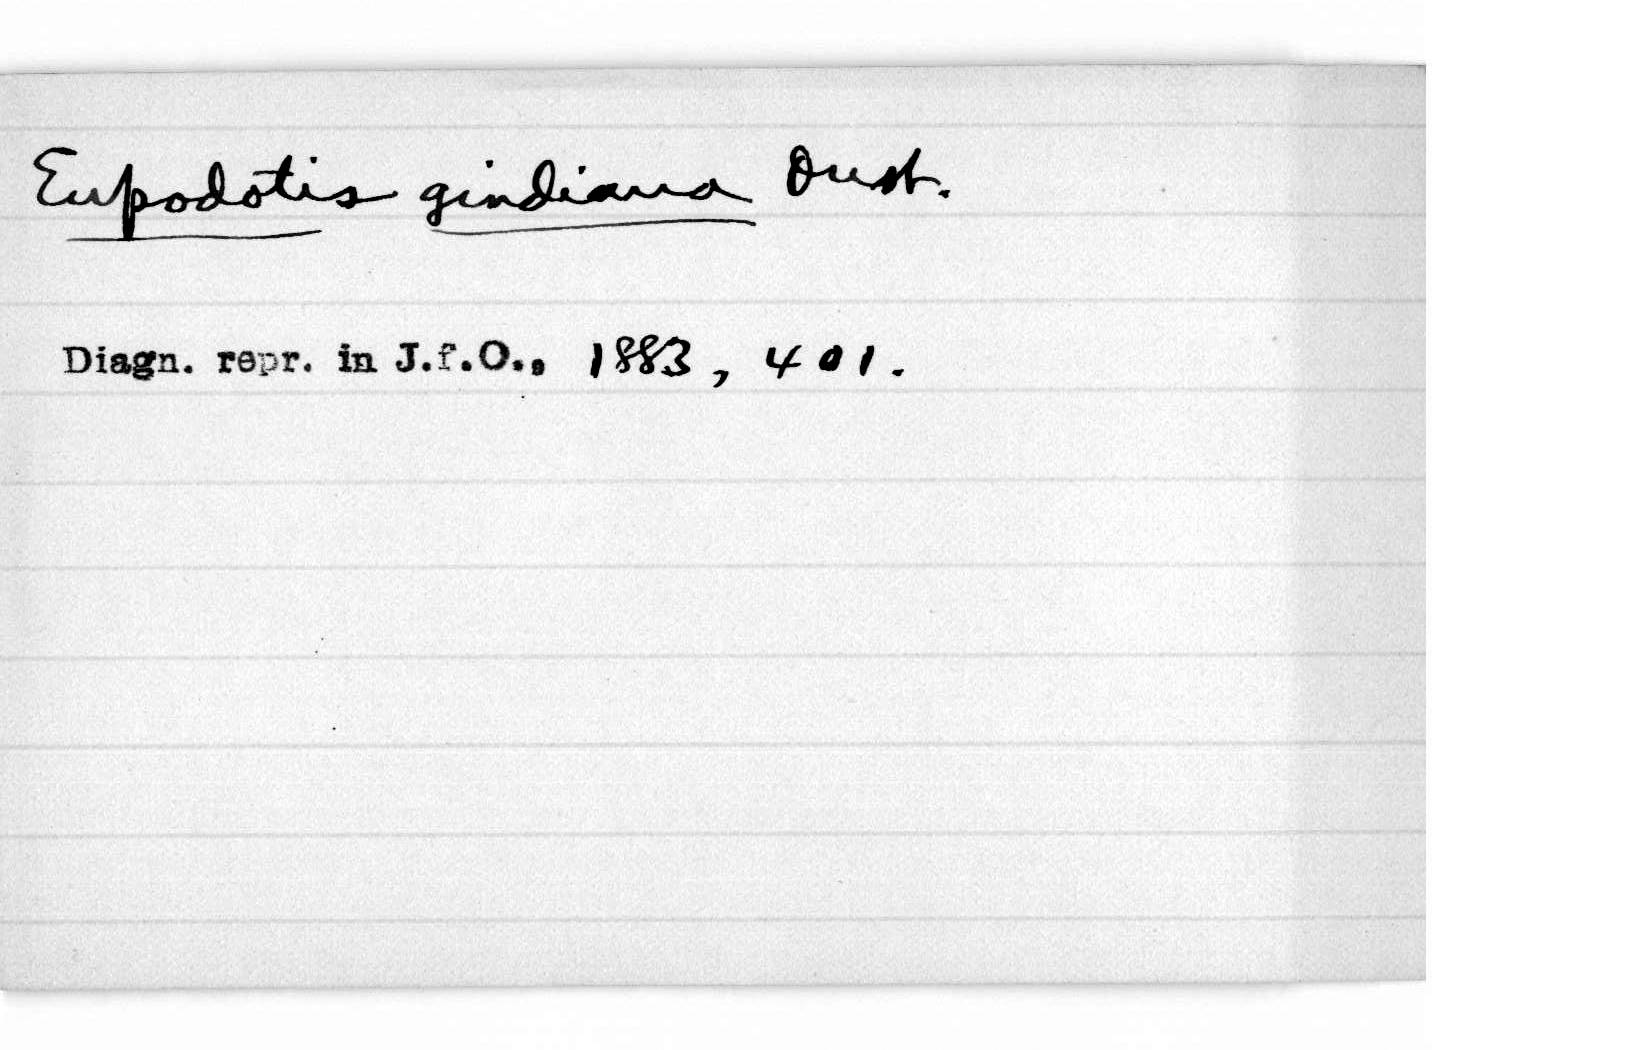 Eupodotis gindiana Oust.
Diagn. repr. in J.f.O., 1883, 401.